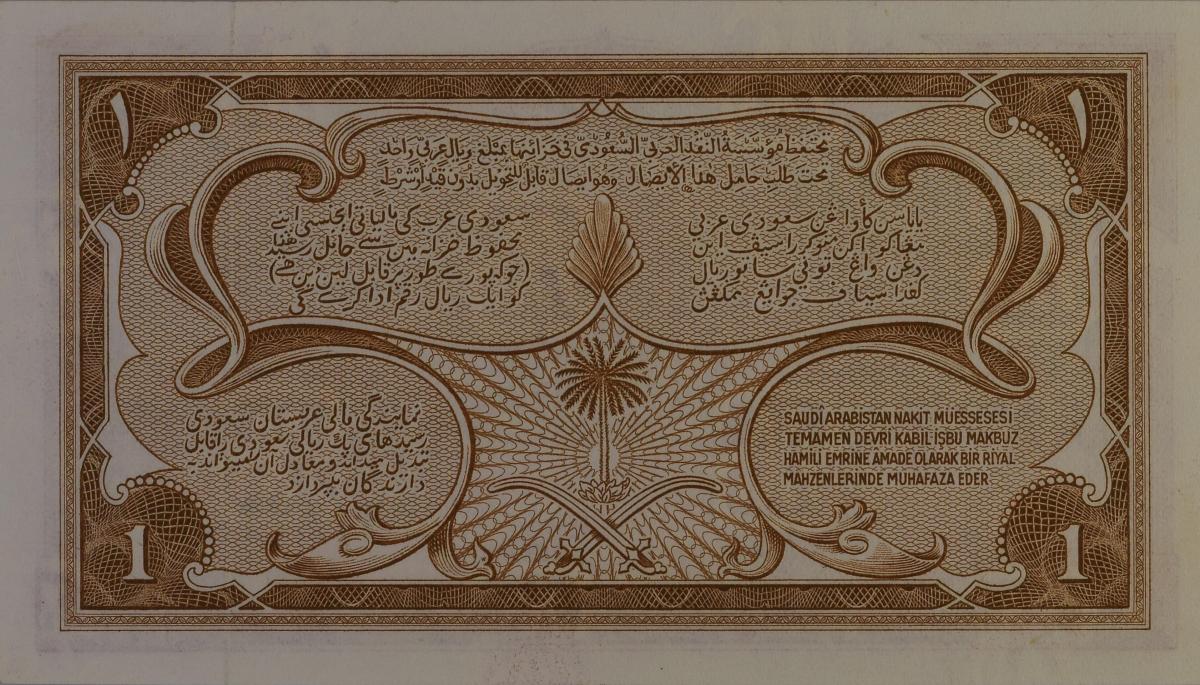 ١
١
تحتفظ مؤسسة النقد العربي السعودي في خزائنها بمبلغ ريال عربي واحد
تحت طلب حامل هذا الإيصال وهو إيصال قابل للتحويل بدون قيد أو شرط
سعودی عرب کی مالیاتی ایجنسی اپنے
محفوظ خزانہ میں سے حامل رسید هذا
(جو کہ پورے طور پر قابل لین دین ہے)
کو ایک ریال رقم ادا کرے گی
سعودي عربي
ريال
نمایندگی مالی عربستان سعودی
رسیدهای یک ریالی سعودی را قابل
تبدیل میداند و معادل آن میتواند به
دارندگان بپردازد
SAUDİ ARABİSTAN NAKİT MÜESSESESİ
TEMAMEN DEVRİ KABİL İŞBU MAKBUZ
HAMİLİ EMRİNE AMADE OLARAK BİR RİYAL
MAHZENLERİNDE MUHAFAZA EDER
1
1